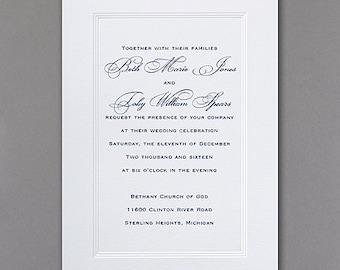 Together with their families
Beth Marie Jones
and
Toby William Spears
request the presence of your company
at their wedding celebration
Saturday, the eleventh of December
Two thousand and sixteen
at six o'clock in the evening
Bethany Church of God
11600 Clinton River Road
Sterling Heights, Michigan